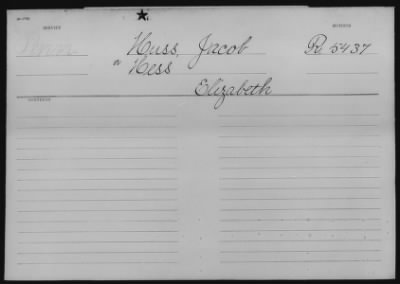 SERVICE
NUMBER
Penn
Huss, Jacob
R. 5437
or Hess
Elizabeth
CONTENTS